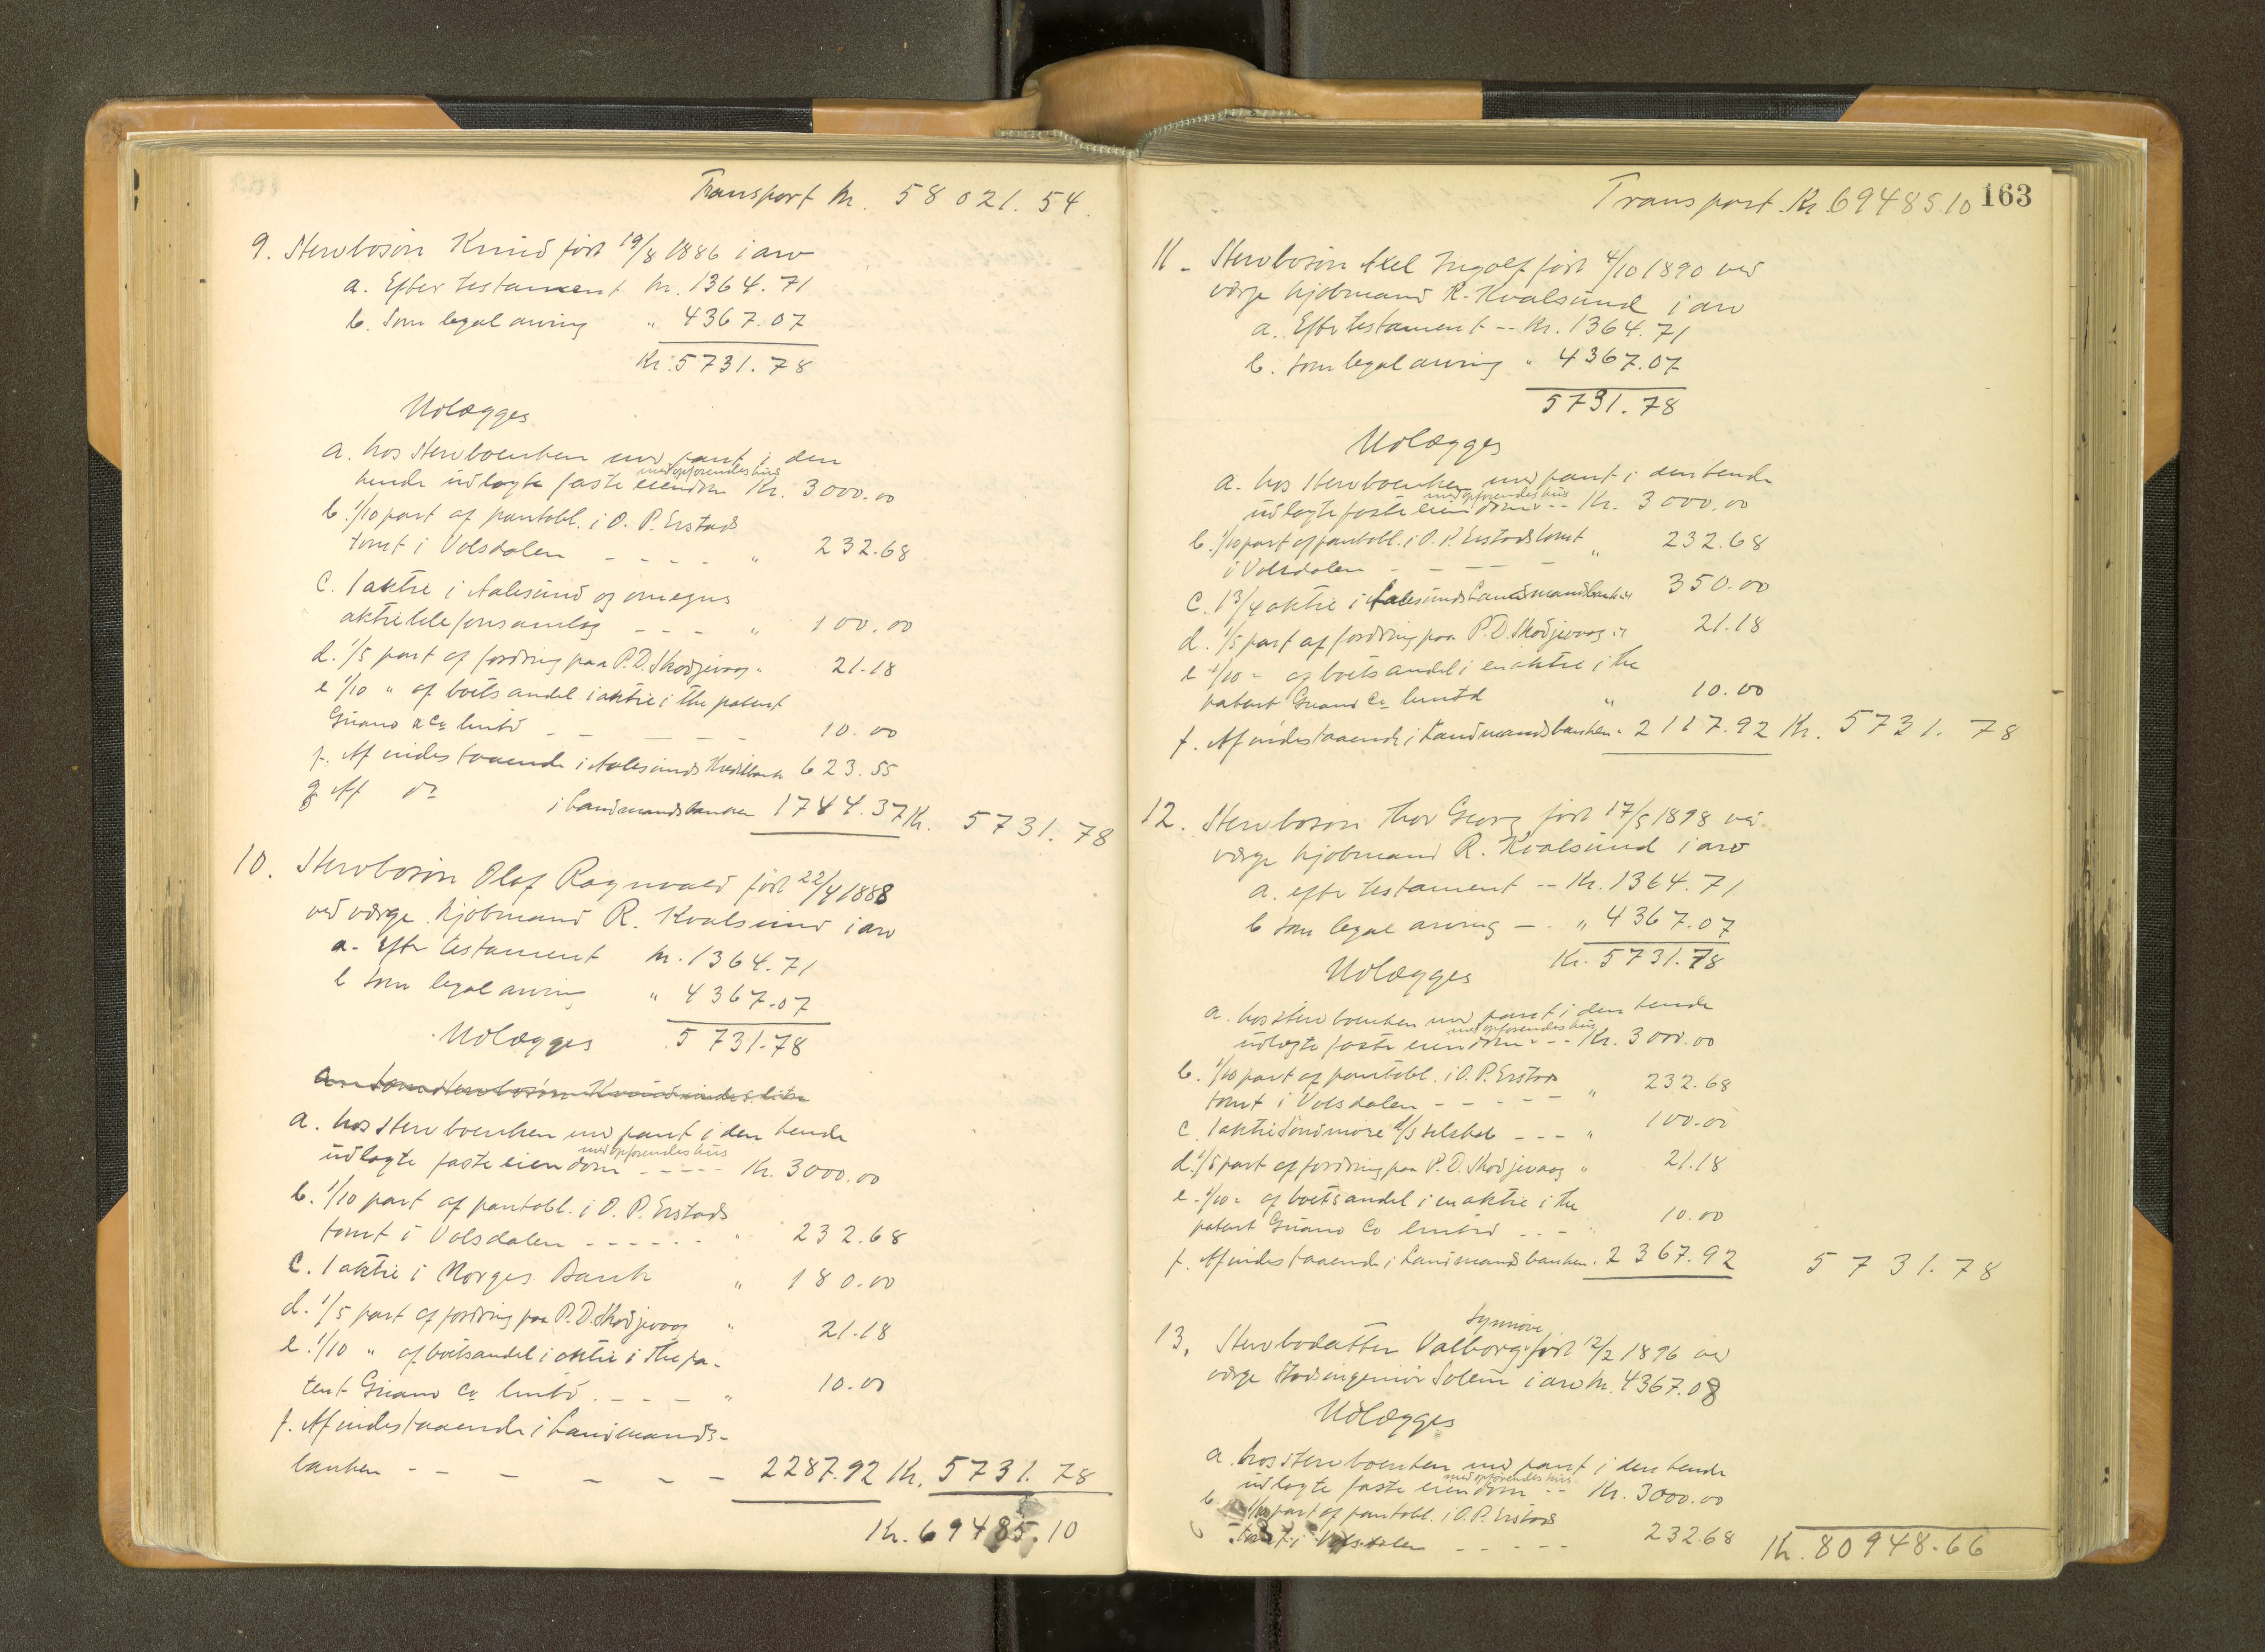 Transport Kr. 58021.54.
9. Stervbosøn Knud født 19/8 1886 i arv
a. Efter testament Kr. 1364.71
b. Som legal arving " 4367.07
Kr. 5731.78
Udlægges
a. hos Stervboenken med pant i den
med opførendes hus
hende udlagte faste eiendom Kr. 3000.00
b. 1/10 part af pantobl. i O. P. Erstads
tomt i Volsdalen - - - - " 232.68
C. 1 aktie i Aalesund og omegns
aktietelefonsamlag - - - " 100.00
d. 1/5 part af fordring paa P. D. Skodjevaag " 21.18
e 1/10 " af boets andel i aktie i the patent
Guano & Co limtd - - - - - 10.00
f. Af indestaaende i Aalesunds Kreditbank 623.55
g Af do i Landmandsbanken 1744.37 Kr. 5731.78
10. Stervbosøn Olaf Ragnvald født 22/4 1888
ved værge kjøbmand R. Kvalsund i arv
a. Efter testament Kr. 1364.71
b som legal arving " 4367.07
Udlægges 5731.78
a. som Stervbosøn Knud
a. hos Stervboenken med pant i den hende
med opførendes hus
udlagte faste eiendom - - - - - Kr. 3000.00
b. 1/10 part af pantobl. i O. P. Erstads
tomt i Volsdalen - - - - - - " 232.68
C. 1 aktie i Norges Bank " 180.00
d. 1/5 part af fordring paa P. D. Skodjevaag " 21.18
e. 1/10 " af boets andel i aktie i The pa-
tent Guano Co limtd. - - - - " 10.00
f. Af indestaaende i Landmands-
banken - - - - - - 2287.92 Kr. 5731.78
Kr. 69485.10
Transport Kr. 69485.10 163
11 - Stervbosøn Axel Ingolf født 4/10 1890 ved
værge kjøbmand R. Kvalsund i arv
a. Efter testament -- Kr. 1364.71
b. som legal arving " 4367.07
5731.78
Udlægges
a. hos Stervboenken med pant i den hende
med opførendes hus
udlagte faste eiendom -- Kr. 3000.00
b. 1/10 part af pantobl. i O. P. Erstads tomt
i Volsdalen - - - - - " 232.68
C. 1 3/4 aktie i Aalesunds Landmandsbank " 350.00
d. 1/5 part af fordring paa P. D. Skodjevaag " 21.18
e 1/10 " af boets andel i en aktie i the
patent Guano Co limtd " 10.00
f. Af indestaaende i Landmandsbanken " 2117.92 Kr. 5731.78
12. Stervbosøn Thor Georg født 17/5 1898 ved
værge kjøbmand R. Kvalsund i arv
a. efter testament -- Kr. 1364.71
b som legal arving - . " 4367.07
Udlægges Kr. 5731.78
a. hos stervboenken med pant i den hende
med opførendes hus
udlagte faste eiendom -- Kr. 3000.00
b. 1/10 part af pantobl. i O. P. Erstads
tomt i Volsdalen - - - - - " 232.68
C. 1 aktie Søndmøre d/s selskab - - - " 100.00
d. 1/5 part af fordring paa P. D. Skodjevaag " 21.18
e - 1/10 " af boets andel i en aktie i the
patent Guano Co limtd - - - " 10.00
f. Af indestaaende i Landmandsbanken. 2367.92 5731.78
Synnøve
13. Stervbodatter Valborg født 12/2 1896 ved
værge Stadsingeniør Solem i arv Kr. 4367.08
Udlægges
a. hos Stervboenken med pant i den hende
med opførendes hus
udlagte faste eiendom -- Kr. 3000.00
b. 1/10 part af pantobl. i O. P. Erstads
tomt i Volsdalen - - - - - 232.68
Kr. 80948.66